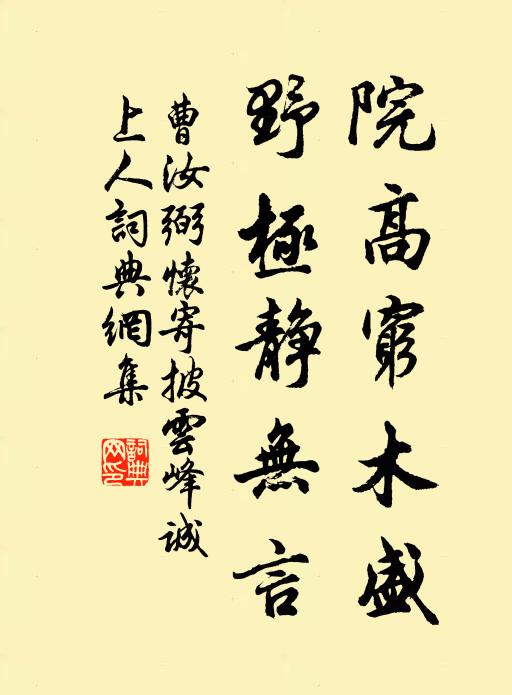 院高窮木盛
野極靜無言
曹汝弼懷寄披雲峰誠
上人詞典網集
詞典網印